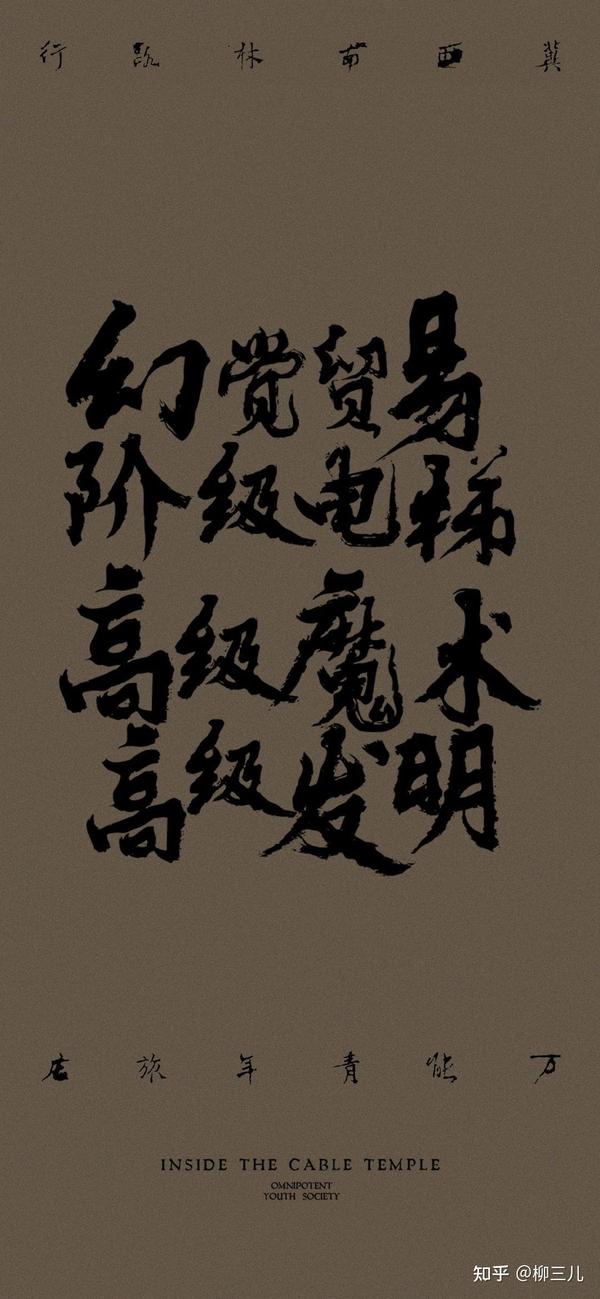 冀西南林路行
幻觉贸易
阶级电梯
高级魔术
高级发明
万能青年旅店
INSIDE THE CABLE TEMPLE
OMNIPOTENT
YOUTH SOCIETY
知乎 @柳三儿